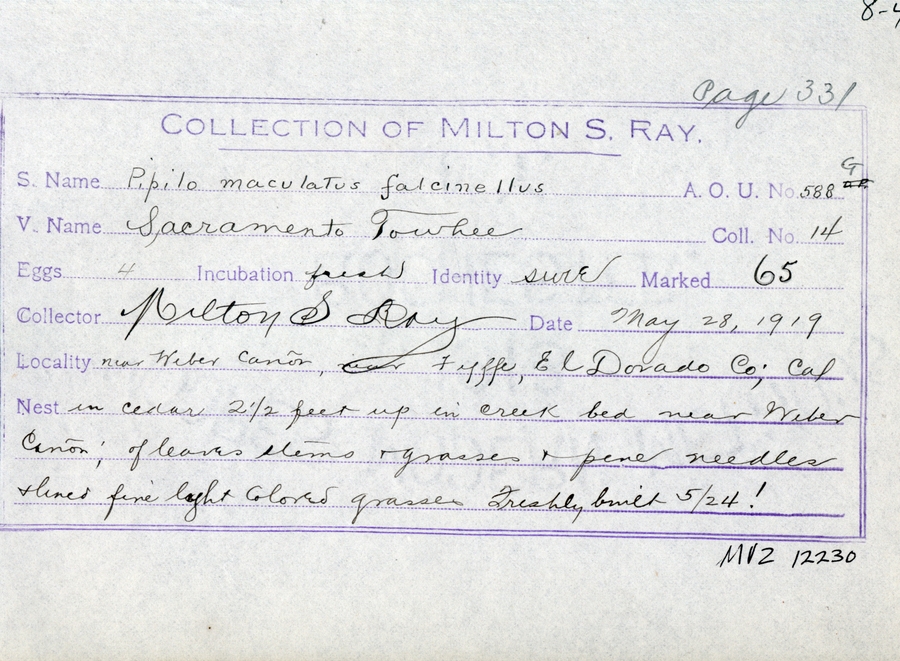 8-4
Page 331
COLLECTION OF MILTON S. RAY.
S. Name Pipilo maculatus falcinellus A. O. U. No. 588 G
V. Name Sacramento Towhee Coll. No. 14
Eggs 4 Incubation fresh Identity sure Marked 65
Collector Milton S Ray Date May 28, 1919
Locality near Weber Cañon, near Fyffe, El Dorado Co; Cal
Nest in cedar 2 1/2 feet up in creek bed near Weber
Cañon; of leaves stems + grasses + pine needles
+ lined fine light colored grasses Freshly built 5/24!
MVZ 12230